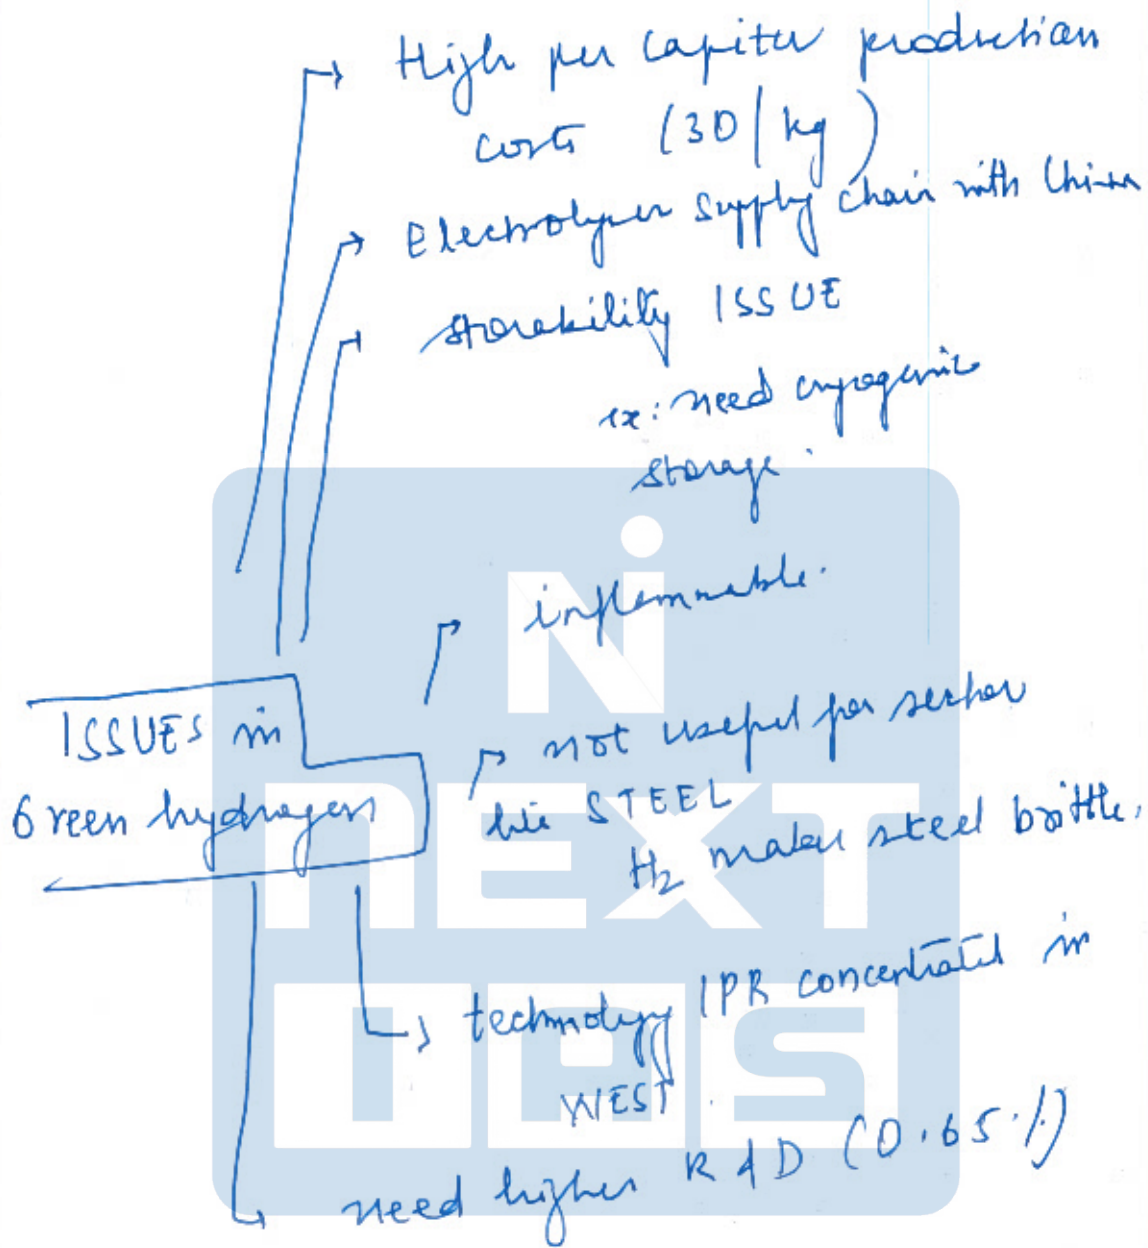 High per capita production
costs (30/kg)
Electrolyser supply chain with China
storability ISSUE
ex: need cryogenic
storage.
inflammable.
ISSUES in
Green hydrogen
not useful for sector
like STEEL
H2 makes steel brittle.
technology IPR concentrated in
WEST.
need higher R&D (0.65%)
NEXT
IAS